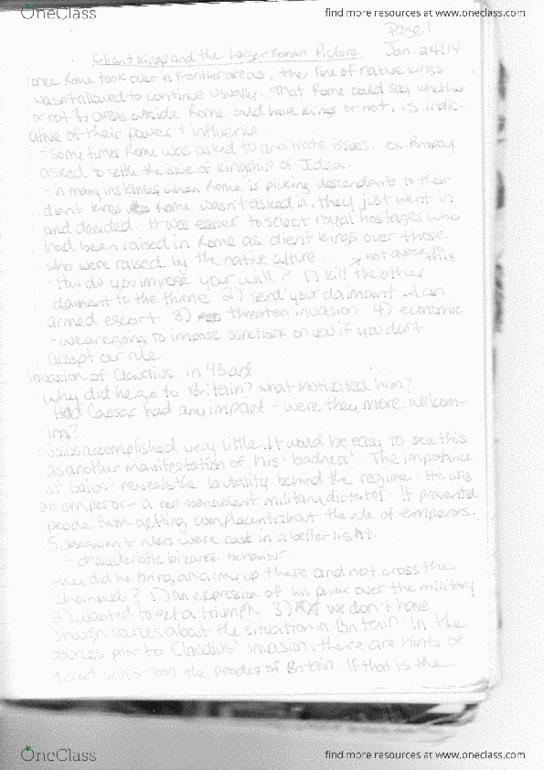 OneClass find more resources at www.oneclass.com
Page 1
Client Kings and the Larger Roman Picture Jan. 24/14
once Rome took over in frontier areas, the line of native kings
wasn't allowed to continue usually. That Rome could say whether
or not areas outside Rome could have kings or not, is indic-
ative of their power + influence.
- Sometimes Rome was asked to arbitrate issues. ex. Pompey
asked to settle the issue of kingship of
- in many instances when Rome is picking descendants to their
client kings Rome wasn't asked in, they just went in
and decided. It was easier to select royal hostages who
had been raised in Rome as client kings over those
who were raised by the native culture. not averse to this
- How do you impose your will? 1) kill the other
claimant to the throne 2) send your claimant w/ an
armed escort 3) threaten invasion 4) economic
- we are going to impose sanctions on you if you don't
accept our rule
Invasion of Claudius in 43 ad
Why did he go to Britain? What motivated him?
Had Caesar had any impact - were they more welcom-
ing?
Gaius accomplished very little. It would be easy to see this
as another manifestation of his 'badness'. The importance
of Gaius' reveals the brutality behind the regime. He was
an emperor - a non-benevolent military dictator. It prevented
people from getting complacent about the rule of emperors.
Subsequent rulers were cast in a better light.
- characteristic bizarre behaviour
Why did he bring an army up there and not cross the
channel? 1) an expression of his power over the military
2) wanted to get a triumph 3) we don't have
enough sources about the situation in Britain. In the
sources prior to Claudius' invasion, there are hints of
the peoples of Britain. If that is the
OneClass find more resources at www.oneclass.com